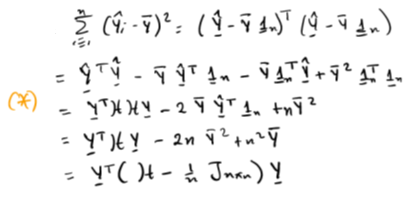 $\sum_{i=1}^{n} (\hat{y}_i - \bar{y})^2 = (\hat{\underline{y}} - \bar{y} \underline{1}_n)^T (\hat{\underline{y}} - \bar{y} \underline{1}_n)$
$= \hat{\underline{y}}^T \hat{\underline{y}} - \bar{y} \hat{\underline{y}}^T \underline{1}_n - \bar{y} \underline{1}_n^T \hat{\underline{y}} + \bar{y}^2 \underline{1}_n^T \underline{1}_n$
(*) $= \underline{y}^T H H \underline{y} - 2 \bar{y} \hat{\underline{y}}^T \underline{1}_n + n \bar{y}^2$
$= \underline{y}^T H \underline{y} - 2n \bar{y}^2 + n^2 \bar{y}$
$= \underline{y}^T ( H - \frac{1}{n} J_{n \times n} ) \underline{y}$